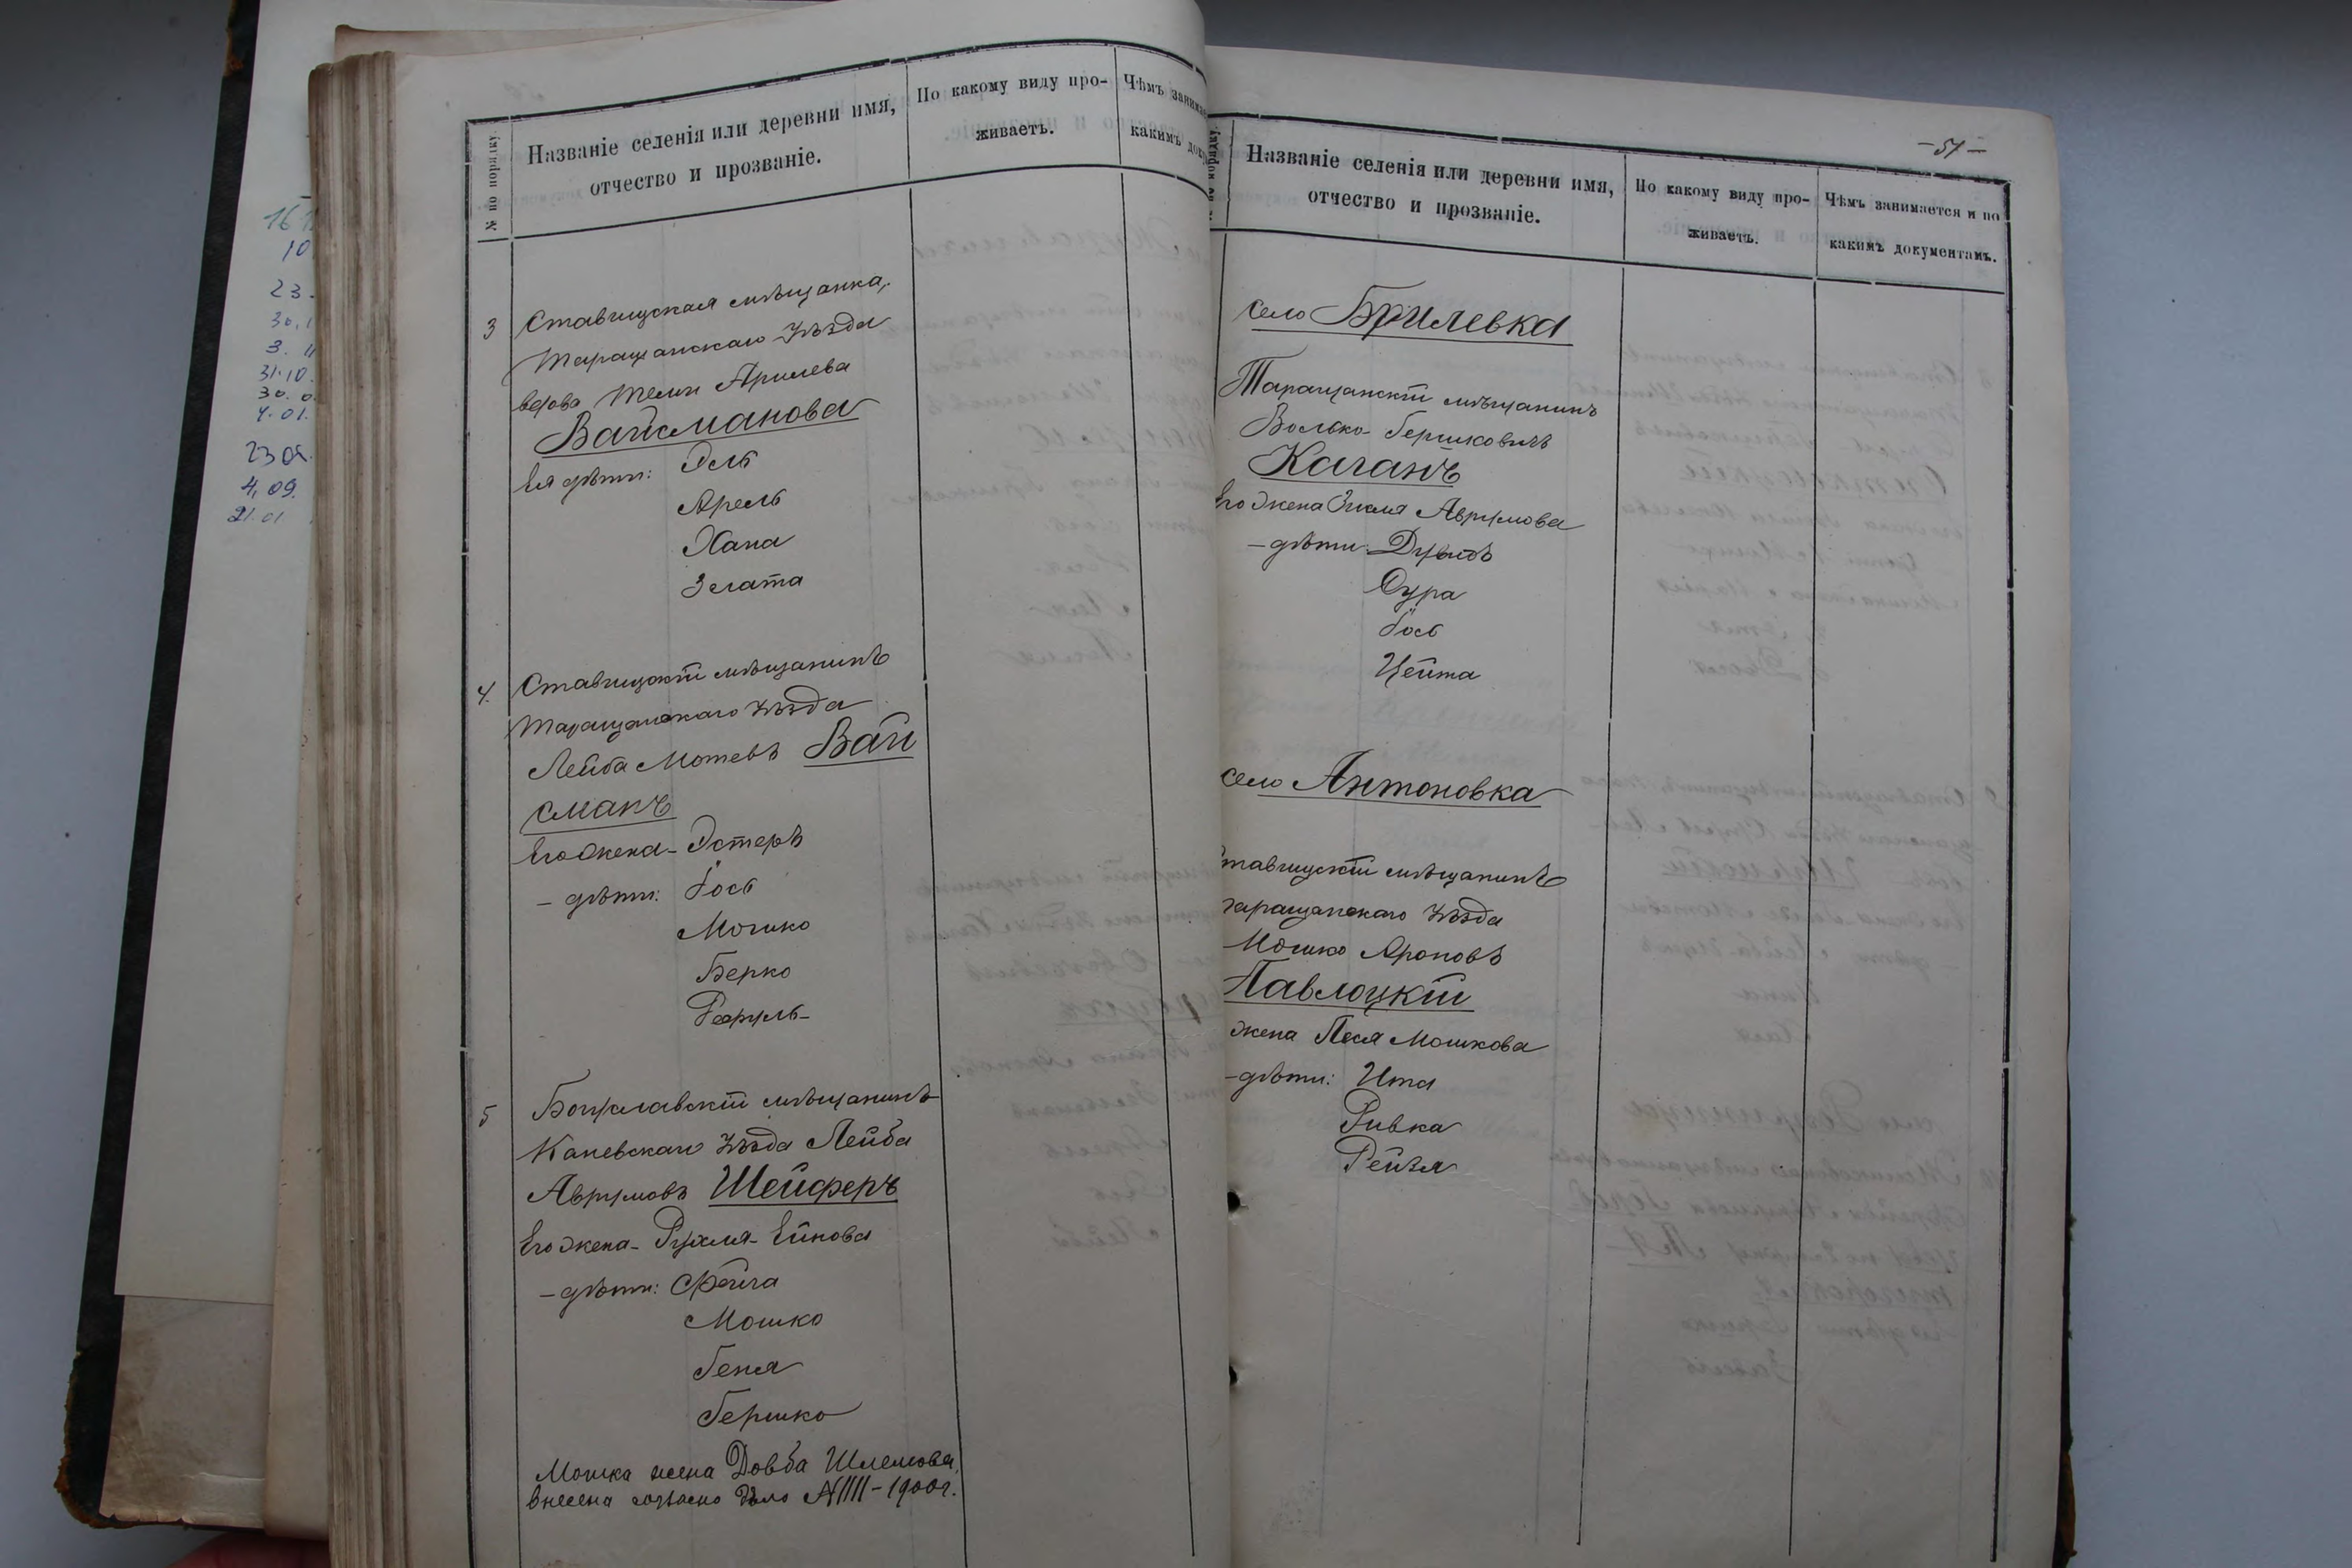 16 1
10
23.
30.1
3. 11
31.10.
30. 0
4.01.
23 09.
4. 09.
21.01
№ по порядку.
Названіе селенія или деревни имя,
отчество и прозваніе.
По какому виду про-
живаетъ.
Чѣмъ занимае
какимъ доку
3 Ставищская мѣщанка,
Таращанскаго уѣзда
вдова Арилева
Вайсманова
Ея дѣти: Эль
Арель
Хана
Злата
4. Ставищскій мѣщанинъ
Таращанскаго уѣзда
Лейба Мотевъ Вай
сманъ
Его жена - Эстеръ
- дѣти: Іось
Мошко
Берко
5 Богуславскій мѣщанинъ
Каневскаго уѣзда Лейба
Аврумовъ Шейферъ
Его жена - Рухля Ейнова
- дѣти: Фейга
Мошко
Геня
Гершко
Мошка жена Довба Шлемова,
внесена согласно дѣло № 1111 - 1900 г.
- 51 -
№ по порядку.
Названіе селенія или деревни имя,
отчество и прозваніе.
По какому виду про-
живаетъ.
Чѣмъ занимается и по
какимъ документамъ.
село Брилевка
Таращанскій мѣщанинъ
Волько Гершковичъ
Каганъ
Его жена Аврумова
- дѣти:
Сура
Іось
Цейта
село Антоновка
Ставищскій мѣщанинъ
Таращанскаго уѣзда
Мошко Ароновъ
Павлоцкій
жена Песя Мошкова
- дѣти: Ита
Ривка
Рейзя